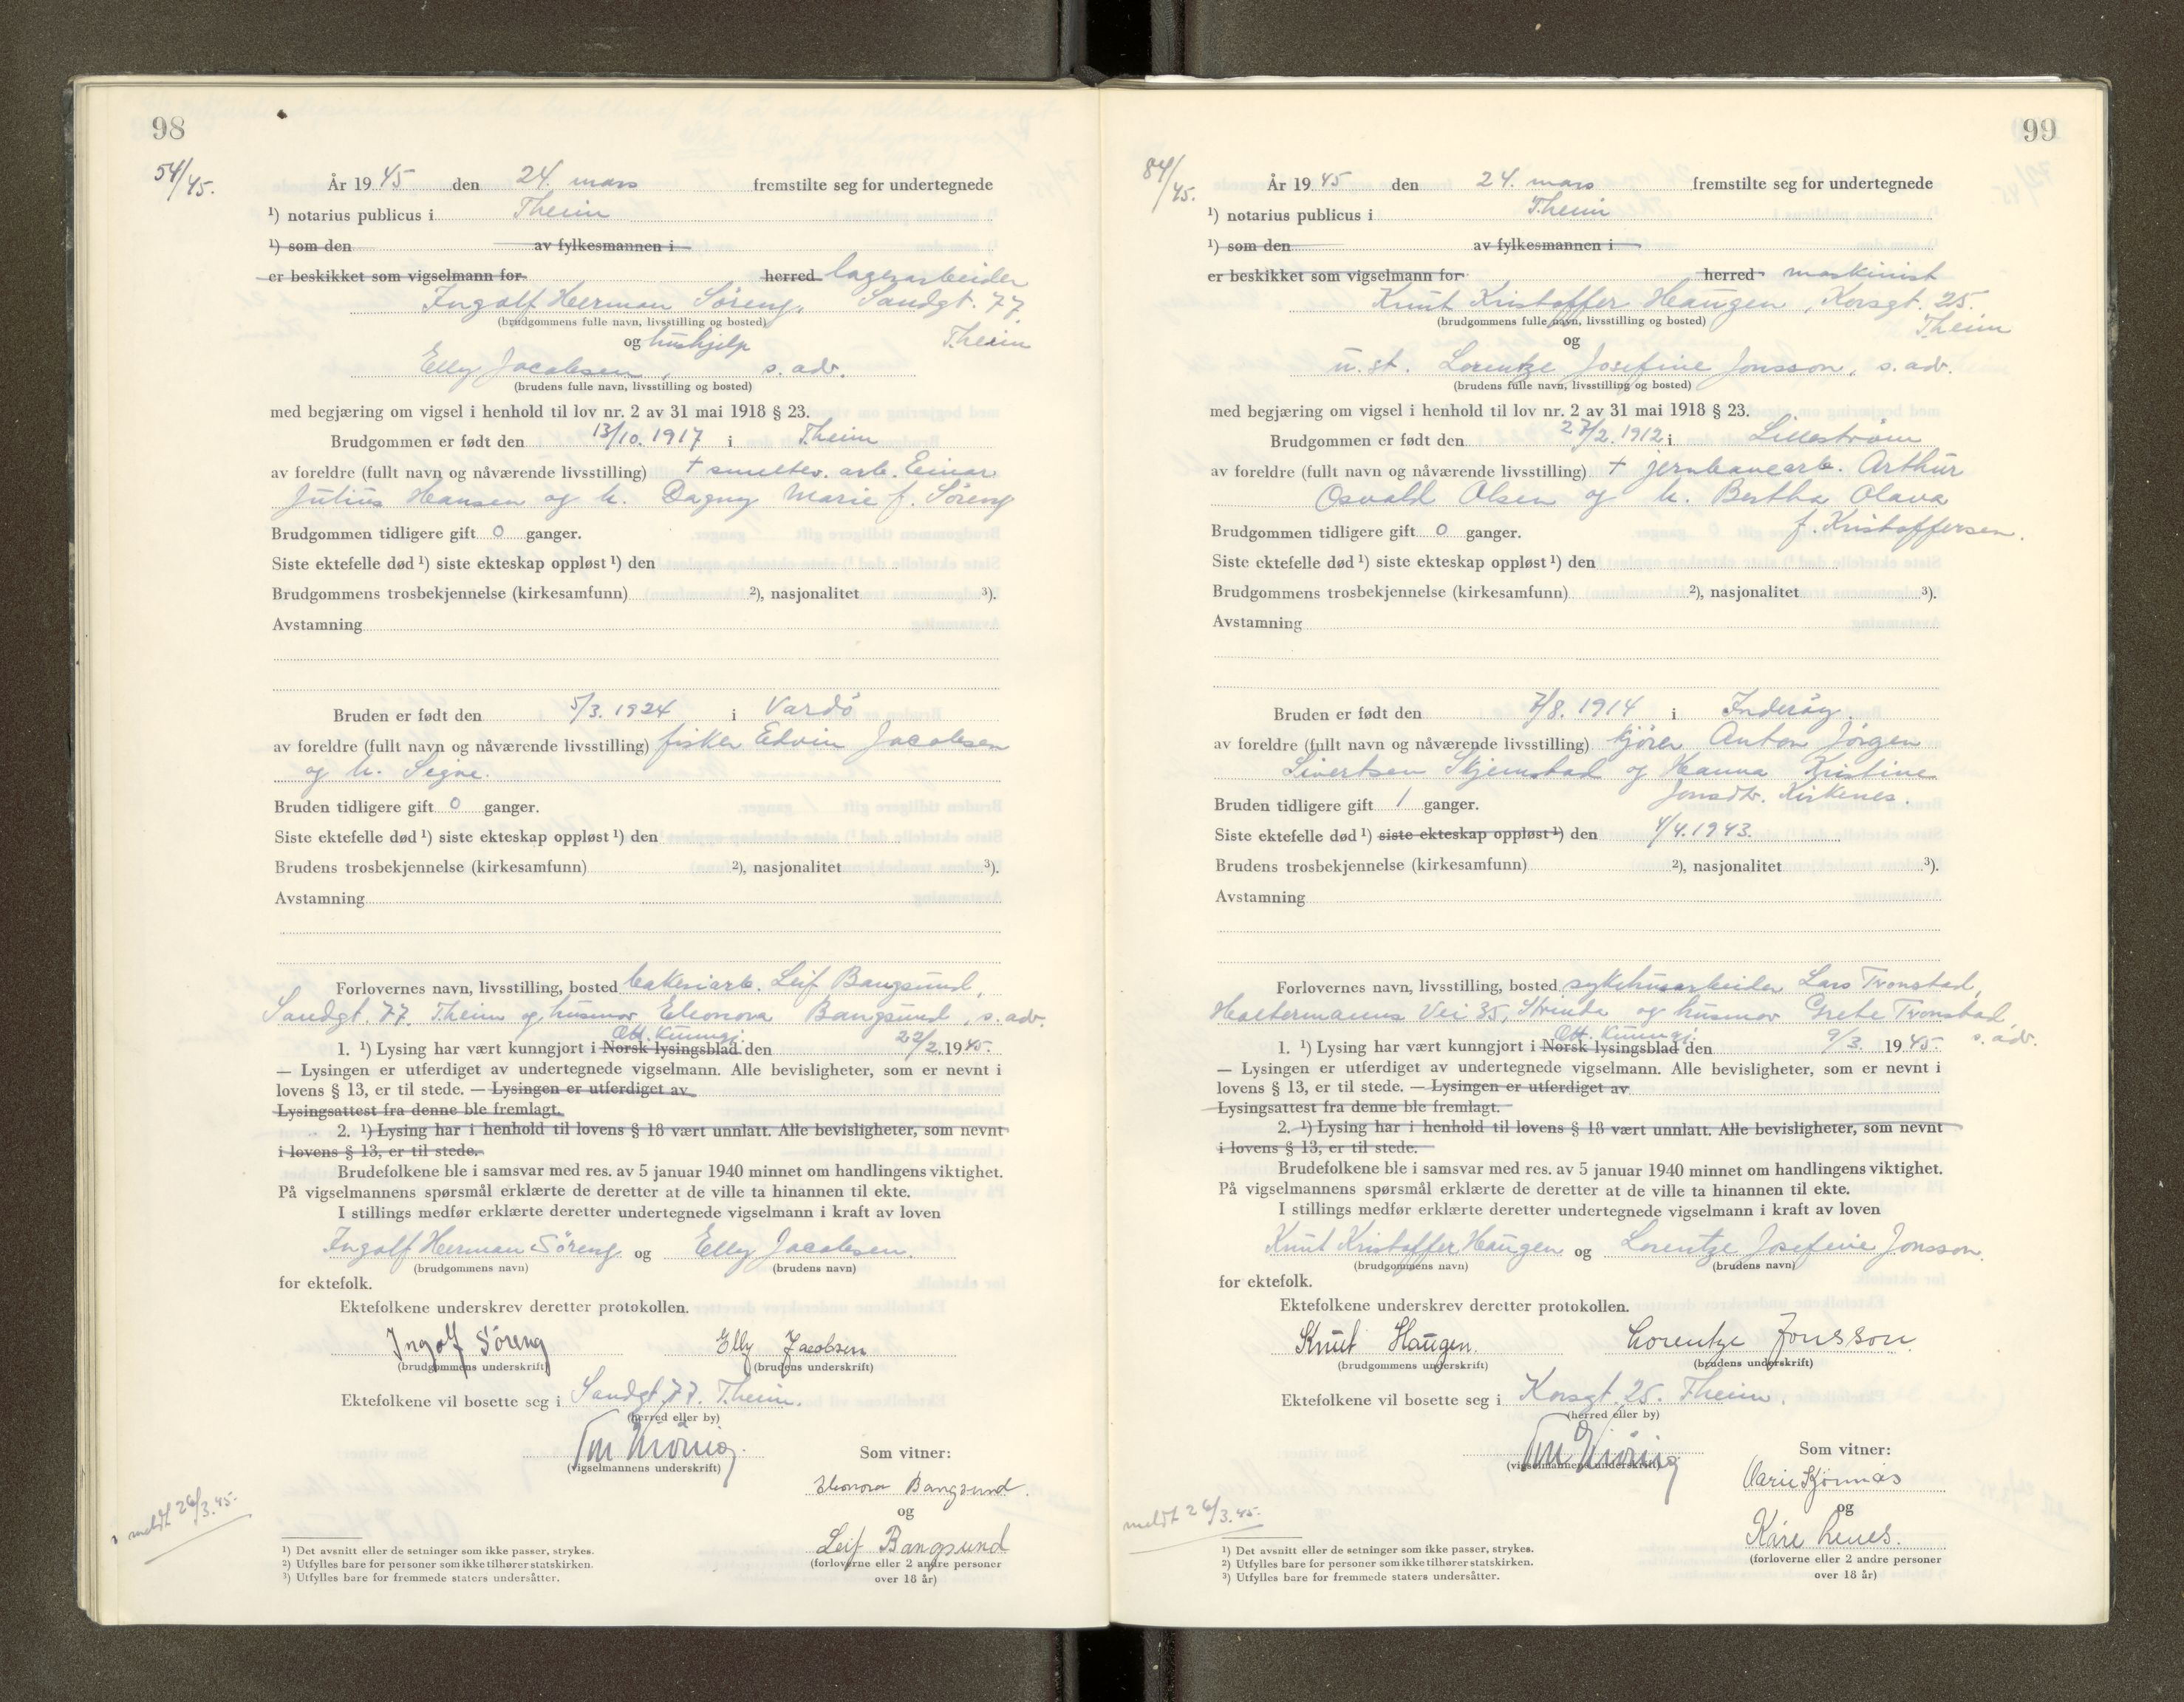 98
54/45.
År 1945 den 24. mars fremstilte seg for undertegnede
¹) notarius publicus i T.heim
¹) som den av fylkesmannen i
er beskikket som vigselmann for herred lagerarbeider
Ingolf Herman Söreng, Sandgt. 77
(brudgommens fulle navn, livsstilling og bosted)
og hushjelp T.heim
Elly Jacobsen, s. adr.
(brudens fulle navn, livsstilling og bosted)
med begjæring om vigsel i henhold til lov nr. 2 av 31 mai 1918 § 23.
Brudgommen er født den 13/10. 1917 i T.heim
av foreldre (fullt navn og nåværende livsstilling) + smeltev. arb. Einar
Julius Hansen og h. Dagny Marie f. Söreng
Brudgommen tidligere gift 0 ganger.
Siste ektefelle død ¹) siste ekteskap oppløst ¹) den
Brudgommens trosbekjennelse (kirkesamfunn) ²), nasjonalitet ³).
Avstamning
Bruden er født den 5/3. 1924 i Vardö
av foreldre (fullt navn og nåværende livsstilling) fisker Edvin Jacobsen
og h. Signe.
Bruden tidligere gift 0 ganger.
Siste ektefelle død ¹) siste ekteskap oppløst ¹) den
Brudens trosbekjennelse (kirkesamfunn) ²), nasjonalitet ³).
Avstamning
Forlovernes navn, livsstilling, bosted bakeriarb. Leif Bangsund,
Sandgt. 77. T.heim og husmor Eleonora Bangsund, s. adr.
Off. Kunngj.
1. ¹) Lysing har vært kunngjort i Norsk lysingsblad den 22/2. 1945.
— Lysingen er utferdiget av undertegnede vigselmann. Alle bevisligheter, som er nevnt i
lovens § 13, er til stede. — Lysingen er utferdiget av
Lysingsattest fra denne ble fremlagt.
2. ¹) Lysing har i henhold til lovens § 18 vært unnlatt. Alle bevisligheter, som nevnt
i lovens § 13, er til stede.
Brudefolkene ble i samsvar med res. av 5 januar 1940 minnet om handlingens viktighet.
På vigselmannens spørsmål erklærte de deretter at de ville ta hinannen til ekte.
I stillings medfør erklærte deretter undertegnede vigselmann i kraft av loven
Ingolf Herman Söreng og Elly Jacobsen.
(brudgommens navn) (brudens navn)
for ektefolk.
Ektefolkene underskrev deretter protokollen.
Ingolf Söreng Elly Jacobsen
(brudgommens underskrift) (brudens underskrift)
Ektefolkene vil bosette seg i Sandgt. 77. T.heim.
(herred eller by)
(vigselmannens underskrift)
Som vitner:
Eleonora Bangsund.
og
Leif Bangsund
(forloverne eller 2 andre personer
over 18 år)
meldt 26/3.45.
¹) Det avsnitt eller de setninger som ikke passer, strykes.
²) Utfylles bare for personer som ikke tilhører statskirken.
³) Utfylles bare for fremmede staters undersåtter.
99
84/45.
År 1945 den 24. mars fremstilte seg for undertegnede
¹) notarius publicus i T.heim
¹) som den av fylkesmannen i
er beskikket som vigselmann for herred maskinist
Knut Kristoffer Haugen, Korsgt. 25.
(brudgommens fulle navn, livsstilling og bosted) T.heim
og
u. st. Lorentze Josefine Jonsson, s. adr.
(brudens fulle navn, livsstilling og bosted)
med begjæring om vigsel i henhold til lov nr. 2 av 31 mai 1918 § 23.
Brudgommen er født den 27/2. 1912 i Lilleström
av foreldre (fullt navn og nåværende livsstilling) + jernbanearb. Arthur
Osvald Olsen og h. Bertha Olava
f. Kristoffersen.
Brudgommen tidligere gift 0 ganger.
Siste ektefelle død ¹) siste ekteskap oppløst ¹) den
Brudgommens trosbekjennelse (kirkesamfunn) ²), nasjonalitet ³).
Avstamning
Bruden er født den 7/8. 1914 i Inderöy.
av foreldre (fullt navn og nåværende livsstilling) kjörer Anton Jörgen
Sivertsen Skjemstad og Hanna Kristine
Jonsdtr. Kirkenes.
Bruden tidligere gift 1 ganger.
Siste ektefelle død ¹) siste ekteskap oppløst ¹) den 4/4. 1943.
Brudens trosbekjennelse (kirkesamfunn) ²), nasjonalitet ³).
Avstamning
Forlovernes navn, livsstilling, bosted sykehusarbeider Lars Tronstad,
Haltermanns Vei 35, Strinda og husmor Grete Tronstad
s. adr.
Off. Kunngj.
1. ¹) Lysing har vært kunngjort i Norsk lysingsblad den 9/3. 1945.
— Lysingen er utferdiget av undertegnede vigselmann. Alle bevisligheter, som er nevnt i
lovens § 13, er til stede. — Lysingen er utferdiget av
Lysingsattest fra denne ble fremlagt.
2. ¹) Lysing har i henhold til lovens § 18 vært unnlatt. Alle bevisligheter, som nevnt
i lovens § 13, er til stede.
Brudefolkene ble i samsvar med res. av 5 januar 1940 minnet om handlingens viktighet.
På vigselmannens spørsmål erklærte de deretter at de ville ta hinannen til ekte.
I stillings medfør erklærte deretter undertegnede vigselmann i kraft av loven
Knut Kristoffer Haugen og Lorentze Josefine Jonsson.
(brudgommens navn) (brudens navn)
for ektefolk.
Ektefolkene underskrev deretter protokollen.
Knut Haugen. Lorentze Jonsson.
(brudgommens underskrift) (brudens underskrift)
Ektefolkene vil bosette seg i Korsgt. 25. T.heim.
(herred eller by)
(vigselmannens underskrift)
Som vitner:
og
Kåre
(forloverne eller 2 andre personer
over 18 år)
meldt 26/3.45.
¹) Det avsnitt eller de setninger som ikke passer, strykes.
²) Utfylles bare for personer som ikke tilhører statskirken.
³) Utfylles bare for fremmede staters undersåtter.